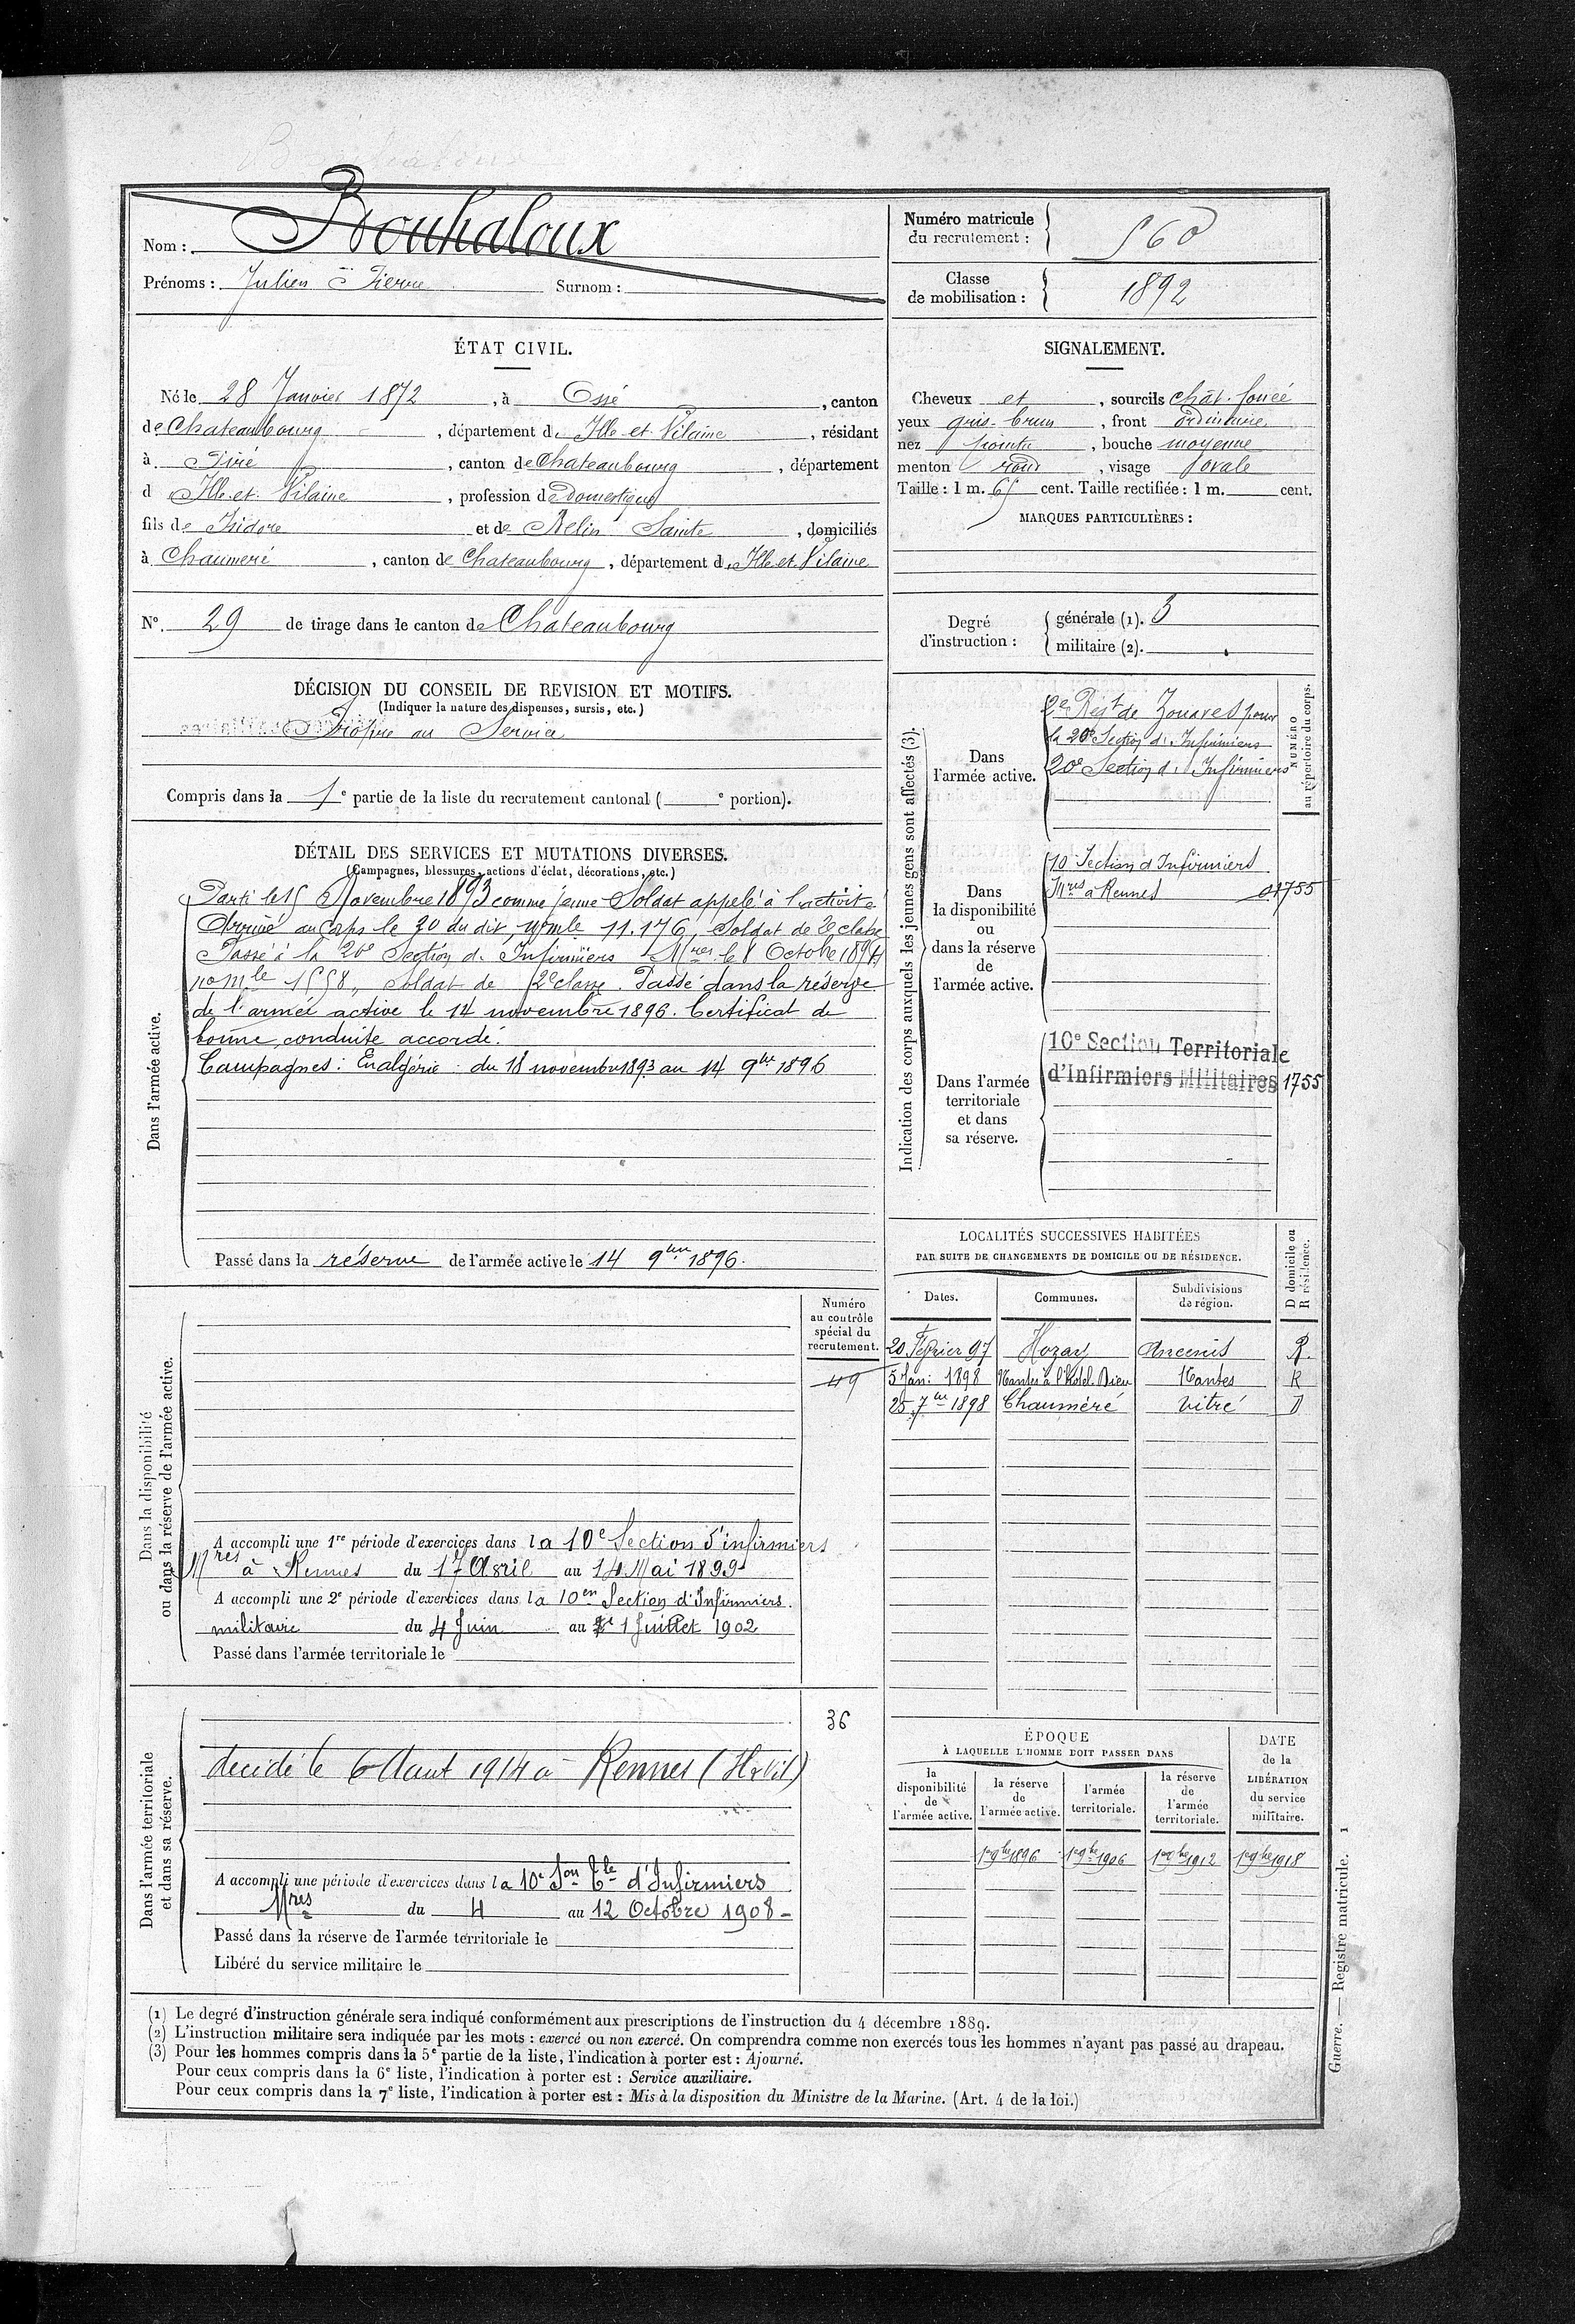 Nom : Bouhaloux
Prénoms : Julien Pierre Surnom :
Numéro matricule du recrutement : 560
Classe de mobilisation : 1892
ÉTAT CIVIL.
Né le 28 Janvier 1872, à Ossé, canton
de Chateaubourg, département d'Ille et Vilaine, résidant
à Piré, canton de Chateaubourg, département
d'Ille et Vilaine, profession de domestique
fils de Isidore et de Sainte, domiciliés
à Chaumeré, canton de Chateaubourg, département d'Ille et Vilaine
N° 29 de tirage dans le canton de Chateaubourg
SIGNALEMENT.
Cheveux et, sourcils chât. foncé
yeux gris-brun, front ordinaire
nez pointu, bouche moyenne
menton rond, visage ovale
Taille : 1 m. 65 cent. Taille rectifiée : 1 m. cent.
MARQUES PARTICULIÈRES :
Degré d'instruction : générale (1). 3
militaire (2).
DÉCISION DU CONSEIL DE REVISION ET MOTIFS.
(Indiquer la nature des dispenses, sursis, etc.)
Propre au Service
Compris dans la 1e partie de la liste du recrutement cantonal ( e portion).
DÉTAIL DES SERVICES ET MUTATIONS DIVERSES.
(Campagnes, blessures, actions d'éclat, décorations, etc.)
Dans l'armée active.
Parti le 15 Novembre 1893 comme jeune Soldat appelé à l'activité
Arrivé au Corps le 20 du dit, nº mle 11.176, Soldat de 2e classe
Passé à la 20e Section d'Infirmiers Mres le 8 Octobre 1894
no mle 1558, Soldat de 2e classe. Passé dans la réserve
de l'armée active le 14 novembre 1896. Certificat de
bonne conduite accordé.
Campagnes : En algérie du 18 novembre 1893 au 14 9bre 1896
Passé dans la réserve de l'armée active le 14 9bre 1896.
Indication des corps auxquels les jeunes gens sont affectés (3).
NUMÉRO au répertoire du corps.
Dans l'armée active.
2e Régt de Zouaves pour
la 20e Section d'Infirmiers
20e Section d'Infirmiers
Dans la disponibilité ou dans la réserve de l'armée active.
10 Section d'Infirmiers
Mres à Rennes 01755
Dans l'armée territoriale et dans sa réserve.
10e Section Territoriale
d'Infirmiers Militaires 1755
LOCALITÉS SUCCESSIVES HABITÉES
PAR SUITE DE CHANGEMENTS DE DOMICILE OU DE RÉSIDENCE.
Dates. Communes. Subdivisions de région. D domicile ou R résidence.
20 Février 97 Ancenis R.
5 Jan: 1898 Nantes à l'Hotel-Dieu Nantes R
25 7bre 1898 Chauméré Vitré D
Dans la disponibilité ou dans la réserve de l'armée active.
Numéro au contrôle spécial du recrutement.
49
A accompli une 1re période d'exercices dans la 10e Section d'infirmiers
Mres à Rennes du 17 Avril au 14 Mai 1899
A accompli une 2e période d'exercices dans la 10en Section d'Infirmiers.
militaire du 4 Juin au 1 Juillet 1902
Passé dans l'armée territoriale le
Dans l'armée territoriale et dans sa réserve.
36
décédé le 6 Aout 1914 à Rennes
A accompli une période d'exercices dans la 10e Son Tle d'Infirmiers
Mres du 4 au 12 Octobre 1908 -
Passé dans la réserve de l'armée territoriale le
Libéré du service militaire le
ÉPOQUE
À LAQUELLE L'HOMME DOIT PASSER DANS
la disponibilité de l'armée active. la réserve de l'armée active. l'armée territoriale. la réserve de l'armée territoriale. DATE de la LIBÉRATION du service militaire.
1er 9bre 1896 1er 9bre 1906 1er 9bre 1912 1er 9bre 1918
(1) Le degré d'instruction générale sera indiqué conformément aux prescriptions de l'instruction du 4 décembre 1889.
(2) L'instruction militaire sera indiquée par les mots : exercé ou non exercé. On comprendra comme non exercés tous les hommes n'ayant pas passé au drapeau.
(3) Pour les hommes compris dans la 5e partie de la liste, l'indication à porter est : Ajourné.
Pour ceux compris dans la 6e liste, l'indication à porter est : Service auxiliaire.
Pour ceux compris dans la 7e liste, l'indication à porter est : Mis à la disposition du Ministre de la Marine. (Art. 4 de la loi.)
Guerre. — Registre matricule. 1